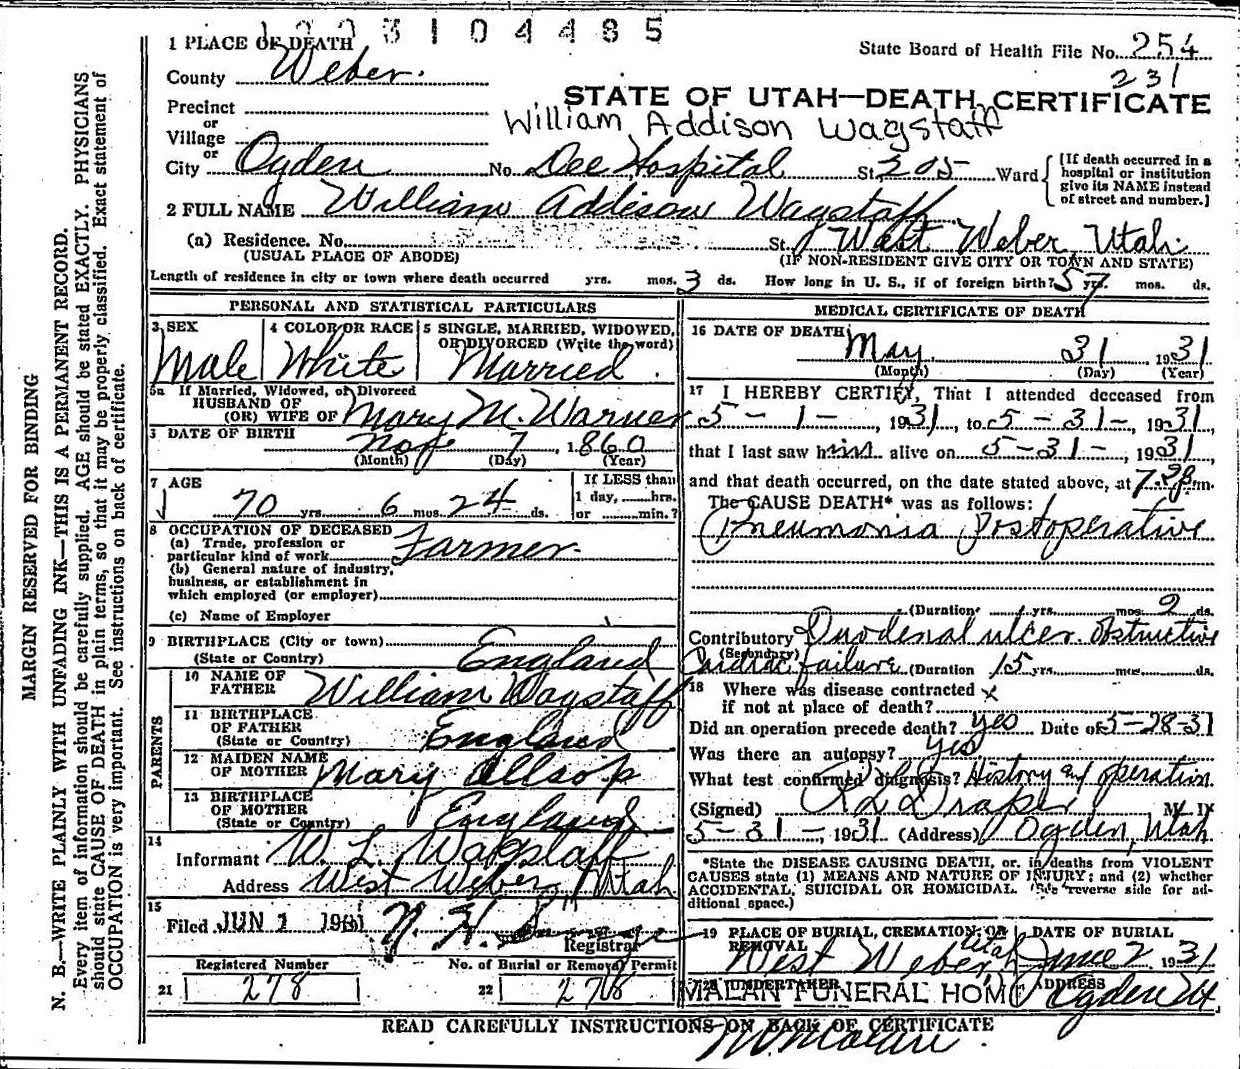 1 PLACE OF DEATH
3104485
State Board of Health File No. 254
231
County Weber.
STATE OF UTAH—DEATH CERTIFICATE
Precinct
or
William Addison Wagstaff
Village
or
City Ogden No. Dee Hospital St. 205 Ward
[If death occurred in a hospital or institution give its NAME instead of street and number.]
2 FULL NAME William Addison Wagstaff
(a) Residence. No. St. West Weber, Utah
(USUAL PLACE OF ABODE) (IF NON-RESIDENT GIVE CITY OR TOWN AND STATE)
Length of residence in city or town where death occurred yrs. mos. 3 ds. How long in U. S., if of foreign birth? 57 yrs. mos. ds.
PERSONAL AND STATISTICAL PARTICULARS
3 SEX 4 COLOR OR RACE 5 SINGLE, MARRIED, WIDOWED, OR DIVORCED (Write the word)
Male White Married.
5a If Married, Widowed, or Divorced
HUSBAND OF
(OR) WIFE OF Mary M. Warner
DATE OF BIRTH
7, 1860
(Month) (Day) (Year)
7 AGE If LESS than
1 day, hrs.
70 yrs. 6 mos. 24 ds. or min.?
8 OCCUPATION OF DECEASED
(a) Trade, profession or
particular kind of work Farmer.
(b) General nature of industry,
business, or establishment in
which employed (or employer)
(c) Name of Employer
9 BIRTHPLACE (City or town)
(State or Country) England
PARENTS
10 NAME OF
FATHER William Wagstaff
11 BIRTHPLACE
OF FATHER
(State or Country) England
12 MAIDEN NAME
OF MOTHER Mary Allsop
13 BIRTHPLACE
OF MOTHER
(State or Country) England
14
Informant W. L. Wagstaff
Address West Weber, Utah
15
Filed JUN 1 1931 N. H.
Registrar
Registered Number No. of Burial or Removal Permit
21 278 22 278
MEDICAL CERTIFICATE OF DEATH
16 DATE OF DEATH
May 31 1931
(Month) (Day) (Year)
17 I HEREBY CERTIFY, That I attended deceased from
5-1-, 1931, to 5-31-, 1931,
that I last saw him alive on 5-31-, 1931,
and that death occurred, on the date stated above, at 7. m.
The CAUSE DEATH* was as follows:
Pneumonia Postoperative
(Duration yrs. mos. 2 ds.
Contributory Duodenal ulcer obstructive
(Secondary)
Cardiac failure (Duration 15 yrs. mos. ds.
18 Where was disease contracted
if not at place of death? x
Did an operation precede death? yes Date of 5-28-31
Was there an autopsy? yes
What test confirmed diagnosis? History and operation
(Signed) Draper M. D.
5-31-1931 (Address) Ogden, Utah
*State the DISEASE CAUSING DEATH, or, in deaths from VIOLENT
CAUSES state (1) MEANS AND NATURE OF INJURY; and (2) whether
ACCIDENTAL, SUICIDAL OR HOMICIDAL. (See reverse side for ad-
ditional space.)
19 PLACE OF BURIAL, CREMATION, OR REMOVAL DATE OF BURIAL
West Weber, Utah June 2, 1931
20 UNDERTAKER ADDRESS
MALAN FUNERAL HOME Ogden Ut
READ CAREFULLY INSTRUCTIONS ON BACK OF CERTIFICATE
MARGIN RESERVED FOR BINDING
N. B.—WRITE PLAINLY WITH UNFADING INK—THIS IS A PERMANENT RECORD.
Every item of information should be carefully supplied. AGE should be stated EXACTLY. PHYSICIANS
should state CAUSE OF DEATH in plain terms, so that it may be properly classified. Exact statement of
OCCUPATION is very important. See instructions on back of certificate.